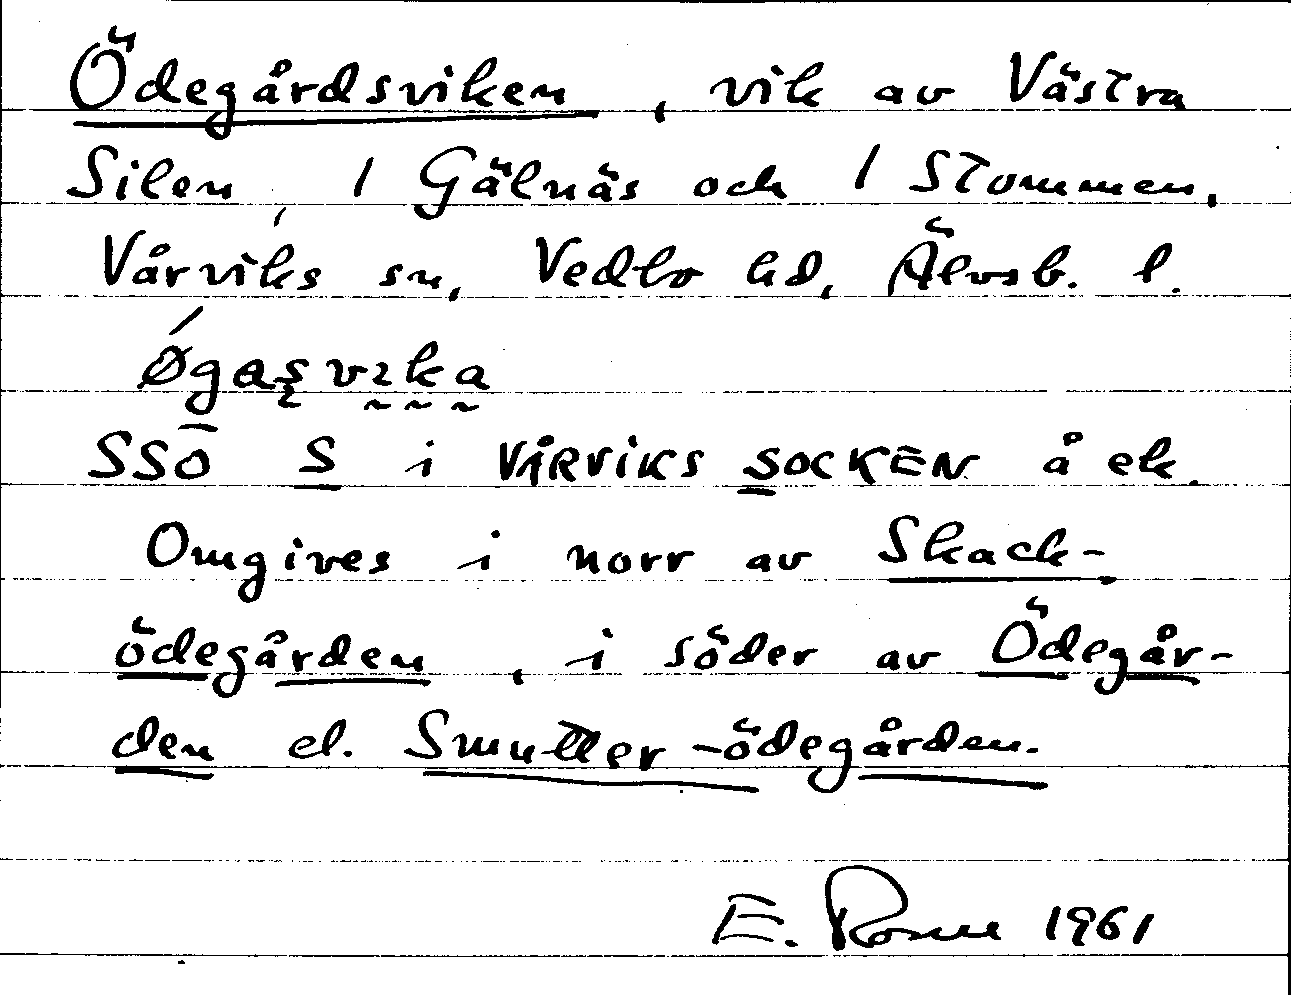 Ödegårdsviken, vik av Västra
Silen, 1 Gälnäs och 1 Stommen,
Vårviks sn, Vedbo hd, Älvsb. l.
Øgasvıka
SSÖ S i VÅRVIKS SOCKEN å ek.
Omgives i norr av Skack-
ödegården, i söder av Ödegår-
den el. Smutter-ödegården.
E. 1961